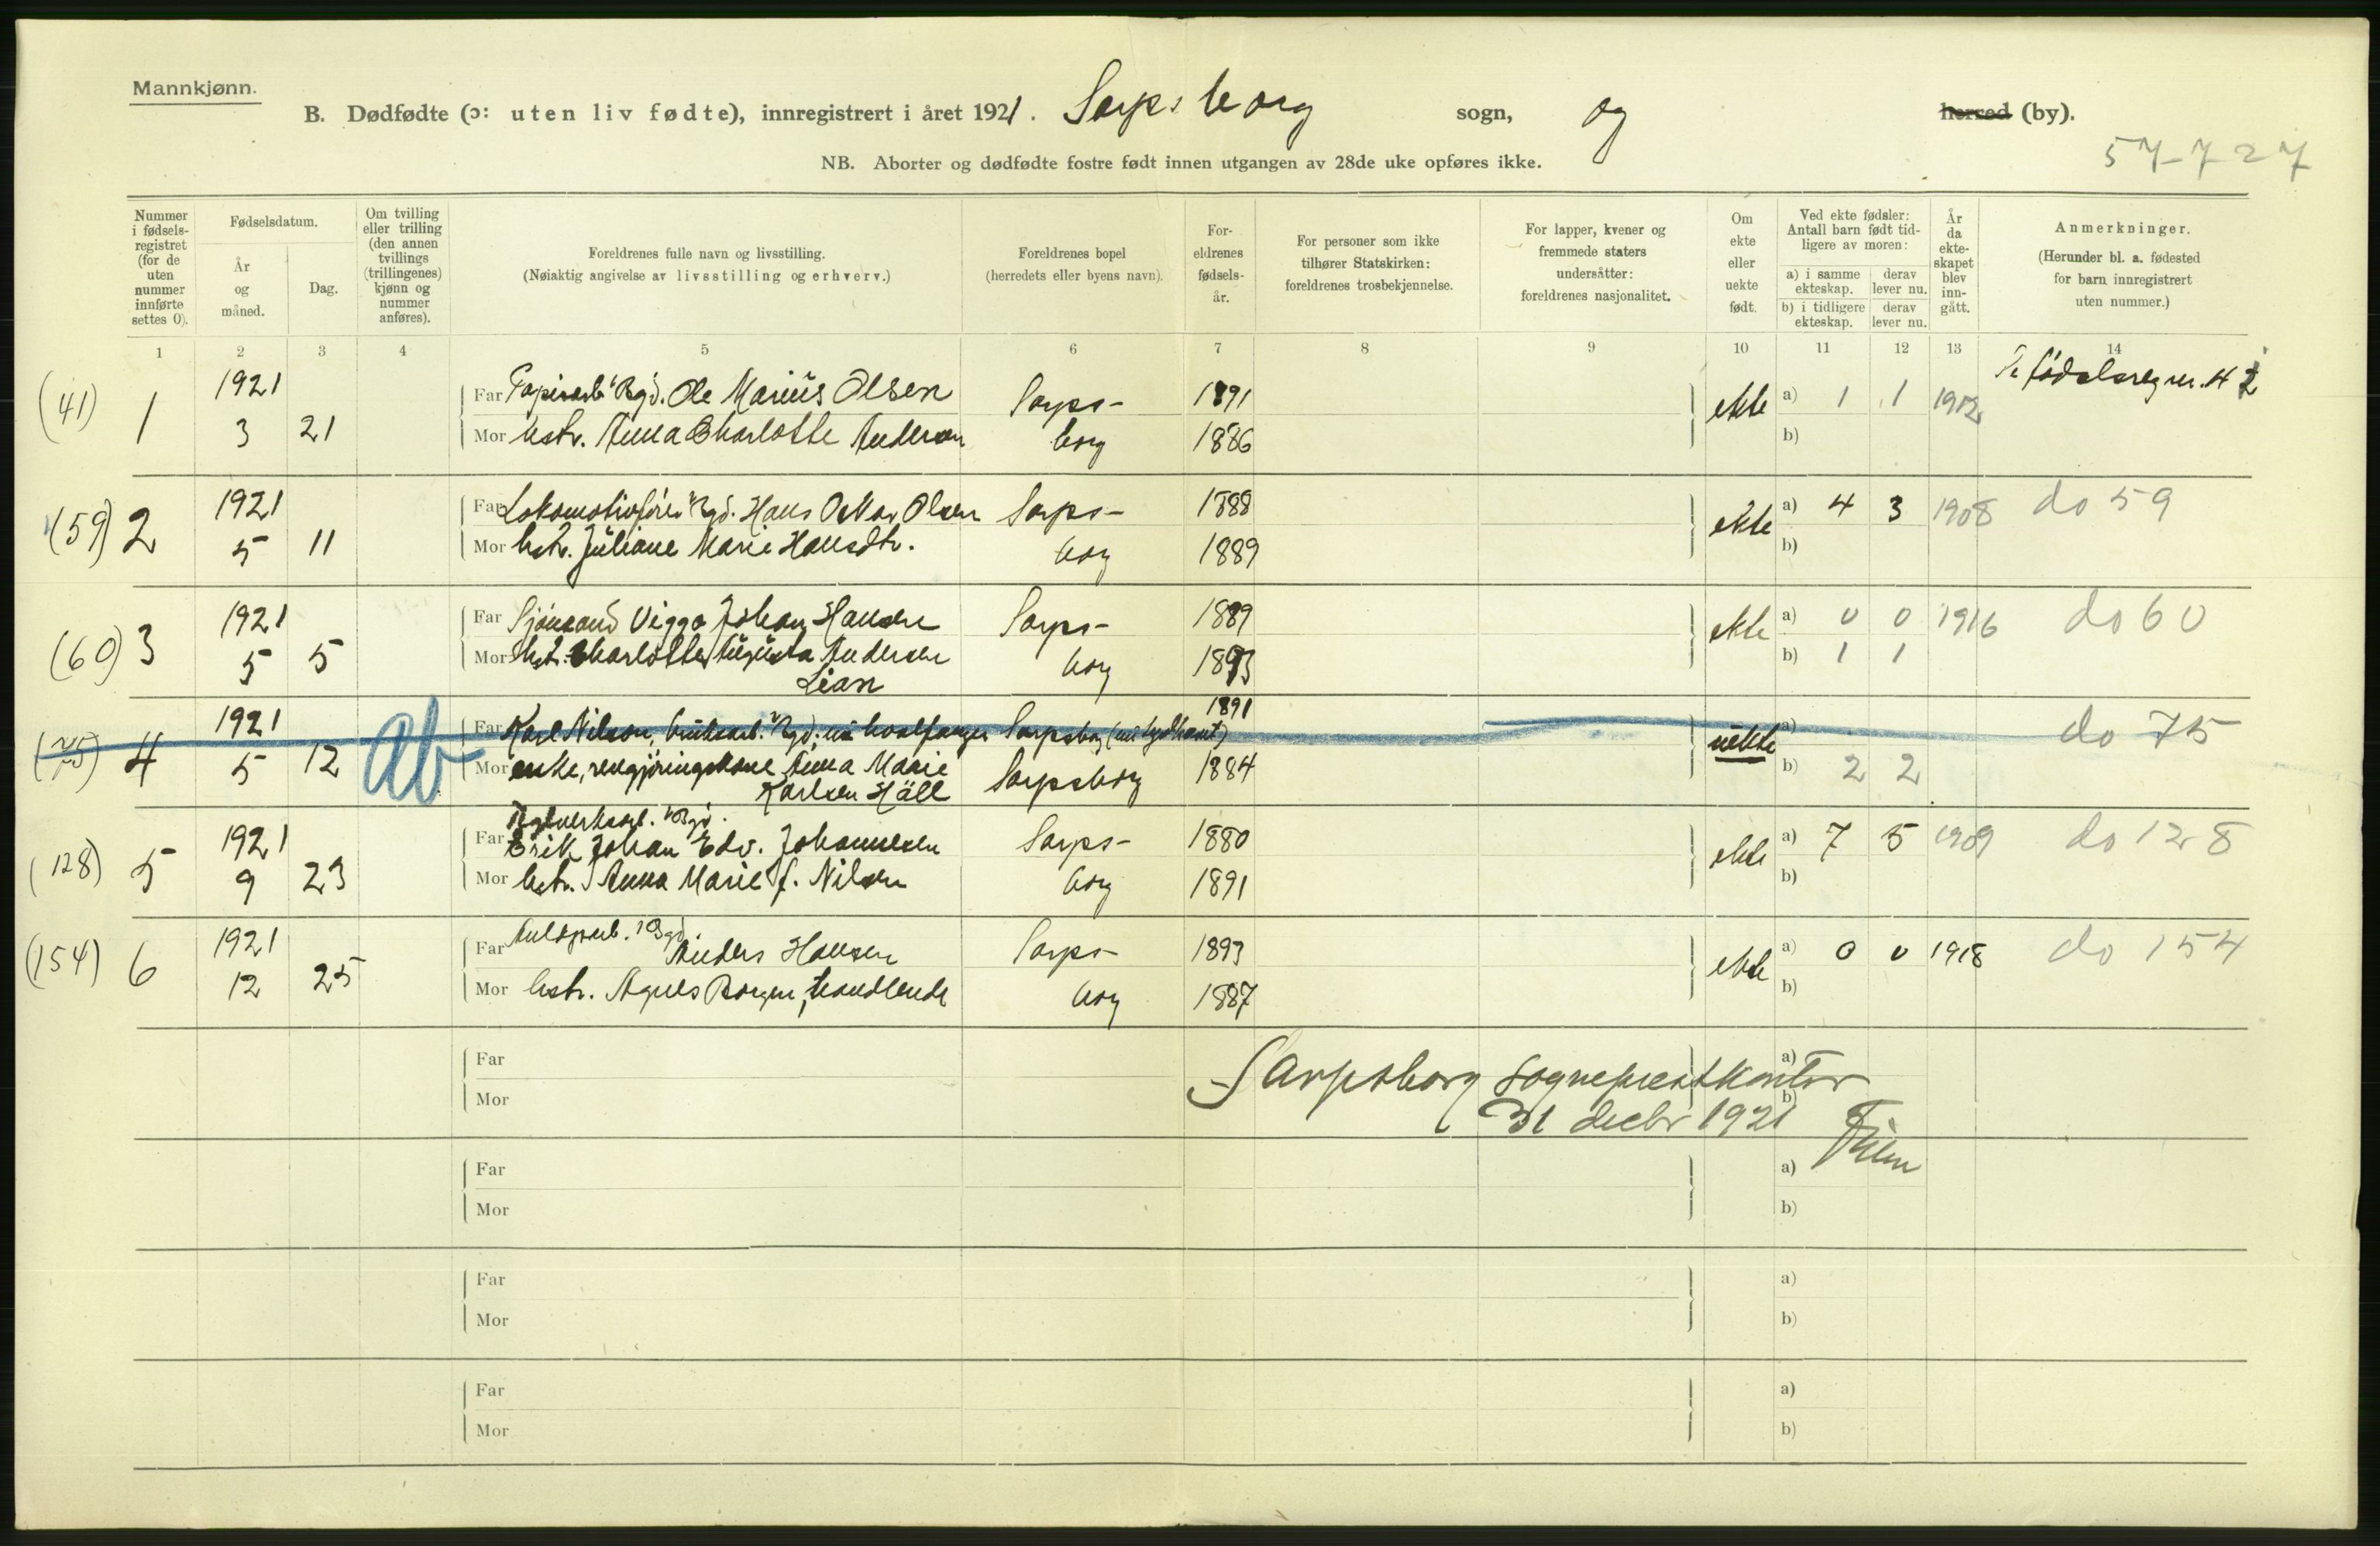 Mannkjønn.
B. Dødfødte (ɔ: uten liv fødte), innregistrert i året 1921. Sarpsborg sogn, og herred (by).
57-727
NB. Aborter og dødfødte fostre født innen utgangen av 28de uke opføres ikke.
Nummer i fødsels-registret (for de uten nummer innførte settes 0).
Fødselsdatum.
År og måned.
Dag.
Om tvilling eller trilling (den annen tvillings (trillingenes) kjønn og nummer anføres).
Foreldrenes fulle navn og livsstilling.
(Nøiaktig angivelse av livsstilling og erhverv.)
Foreldrenes bopel
(herredets eller byens navn).
For-eldrenes fødsels-år.
For personer som ikke tilhører Statskirken: foreldrenes trosbekjennelse.
For lapper, kvener og fremmede staters undersåtter: foreldrenes nasjonalitet.
Om ekte eller uekte født.
Ved ekte fødsler: Antall barn født tid-ligere av moren:
a) i samme ekteskap. derav lever nu.
b) i tidligere ekteskap. derav lever nu.
År da ekte-skapet blev inn-gått.
Anmerkninger.
(Herunder bl. a. fødested for barn innregistrert uten nummer.)
1 2 3 4 5 6 7 8 9 10 11 12 13 14
(41) 1 1921 3 21
Far Papirarb. Bgd. Ole Marius Olsen Sarps- 1891 ekte a) 1 1 1912 fødselsreg nr. 42
Mor hstr. Anna Charlotte Andersen borg 1886 b)
(59) 2 1921 5 11
Far Lokomotivfører Bgd. Hans Oskar Olsen Sarps- 1888 ekte a) 4 3 1908 do 59
Mor hstr. Juliane Marie Hansdtr. borg 1889 b)
(60) 3 1921 5 5
Far Sjømand Viggo Johan Hansen Sarps- 1889 ekte a) 0 0 1916 do 60
Mor hstr. Charlotte Augusta Andersen Lian borg 1893 b) 1 1
(75) 4 1921 5 12 ab
Far Karl Nilsen, bruksarb. Bgd. nu hvalfanger Sarpsborg 1891 uekte a) do 75
Mor enke, rengjøringskone Anna Marie Karlsen Häll Sarpsborg 1884 b) 2 2
(128) 5 1921 9 23
Far Erik Johan Edv. Johannesen Sarps- 1880 ekte a) 7 5 1909 do 128
Mor hstr. Anna Marie f. Nilsen borg 1891 b)
(154) 6 1921 12 25
Far Bgd. Anders Hansen Sarps- 1893 ekte a) 0 0 1918 do 154
Mor hstr. Agnes Borgen, handlende borg 1887 b)
Far a)
Mor b)
Sarpsborg sogneprestkontor
31 decbr 1921
Far a)
Mor b)
Far a)
Mor b)
Far a)
Mor b)